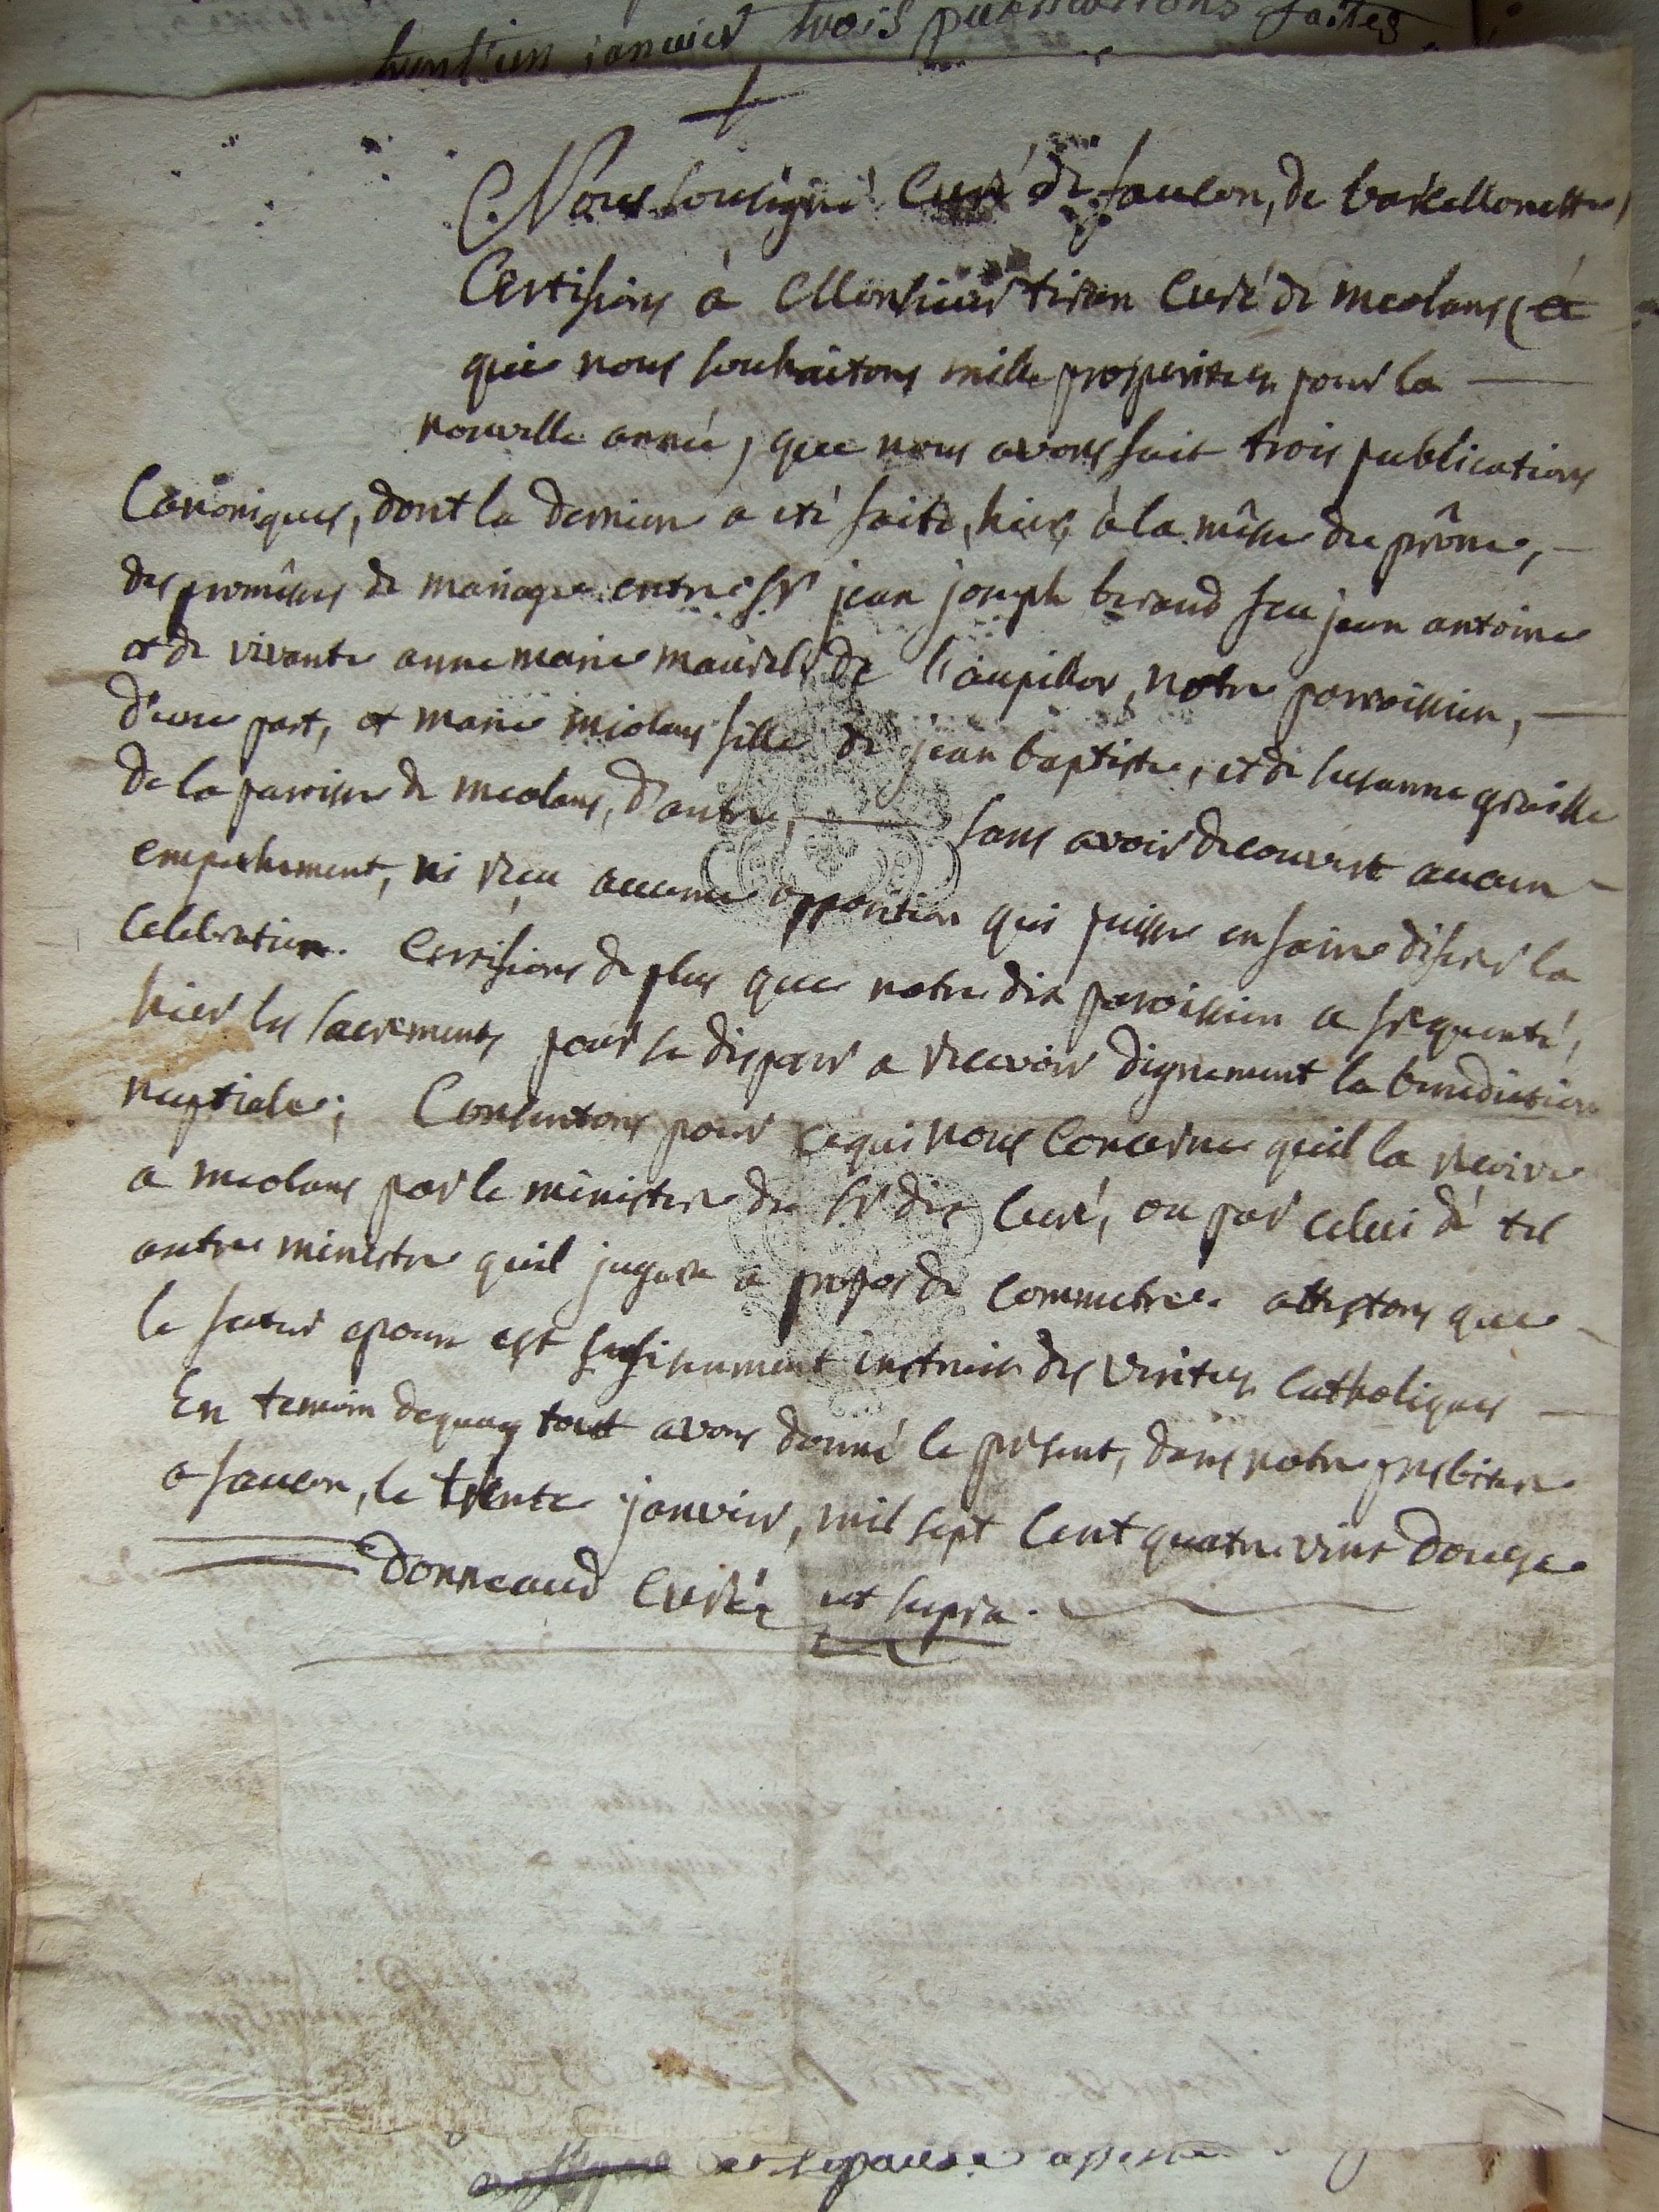 trent'un janvier trois publications faites
Nous sousigné Curé de faucon, de barcellonette,
Certifions à Monsieur tiran Curé de meolans (à
qui nous souhaitons mille prosperités pour la
nouvelle année, que nous avons fait trois publications
Canoniques, dont la derniere a eté faite, hier, à la mêsse du prône,
des promêsses de mariage entre sr jean joseph beraud feu jean antoine
et de vivante anne marie maurel, de l'aupillon, notre parroissien,
d'une part, et marie miolans fille de jean baptiste, et de susanne graille
de la parroisse de meolans, d'autre, sans avoir decouvert aucun
empechement, ni reçu aucune opposition qui puisse en faire diferer la
Celebration. Certifions de plus que notre dit paroissien a frequenté,
hier les sacrements pour se disposer a recevoir dignement la benediction
nuptiale; Consentons pour ce qui nous concerne qu'il la reçoive
a meolans par le ministere du sr dit Curé, ou par celui de tel
autre ministre qu'il jugera a propos de commettre. attestons que
le futur epoux est sufisemment instruit des verites Catholiques
En temoin dequoy tout avons donné le present, dans notre presbitere
a faucon, le trente janvier, mil sept Cent quatre vint douze
Donneaud Curé ut supra.